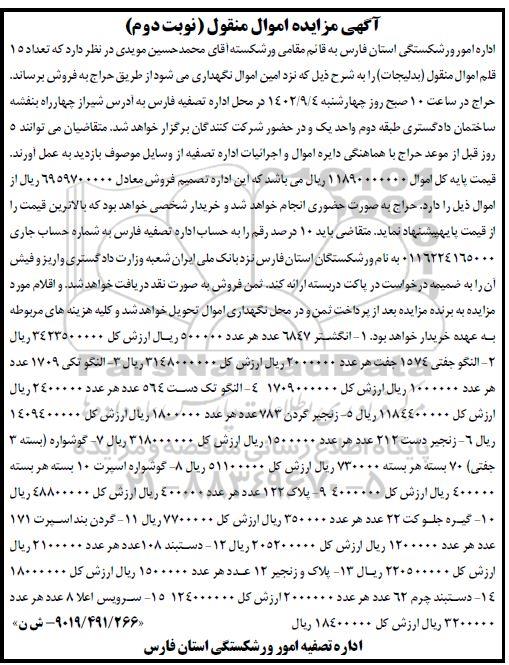 آگهی مزایده اموال منقول (نوبت دوم)
اداره امور ورشکستگی استان فارس به قائم مقامی ورشکسته آقای محمدحسین مویدی در نظر دارد که تعداد ۱۵
قلم اموال منقول (بدلیجات) را به شرح ذیل که نزد امین اموال نگهداری می شود از طریق حراج به فروش برساند.
حراج در ساعت ۱۰ صبح روز چهارشنبه ۱۴۰۲/۹/۴ در محل اداره تصفیه فارس به آدرس شیراز چهارراه بنفشه
ساختمان دادگستری طبقه دوم واحد یک و در حضور شرکت کنندگان برگزار خواهد شد. متقاضیان می توانند ۵
روز قبل از موعد حراج با هماهنگی دایره اموال و اجرائیات اداره تصفیه از وسایل موصوف بازدید به عمل آورند.
قیمت پایه کل اموال ۱۱۸۹۰۰۰۰۰۰۰ ریال می باشد که این اداره تصمیم فروش معادل ۶۹۵۹۷۰۰۰۰۰ ریال از
اموال ذیل را دارد. حراج به صورت حضوری انجام خواهد شد و خریدار شخصی خواهد بود که بالاترین قیمت را
از قیمت پایهپیشنهاد نماید. متقاضی باید ۱۰ درصد رقم را به حساب اداره تصفیه فارس به شماره حساب جاری
۰۱۱۶۲۲۴۱۶۵۰۰۰ به نام ورشکستگان استان فارس نزد بانک ملی ایران شعبه وزارت دادگستری واریز و فیش
آن را به ضمیمه درخواست در پاکت دربسته ارائه کند. ثمن فروش به صورت نقد دریافت خواهد شد. و اقلام مورد
مزایده به برنده مزایده بعد از پرداخت ثمن و در محل نگهداری اموال تحویل خواهد شد و کلیه هزینه های مربوطه
به عهده خریدار خواهد بود. ۱- انگشتر ۶۸۴۷ عدد هر عدد ۵۰۰۰۰۰ ریال ارزش کل ۳۴۲۳۵۰۰۰۰۰ ریال
۲- النگو جفتی ۱۵۷۴ جفت هر عدد ۲۰۰۰۰۰۰ ریال ارزش کل ۳۱۴۸۰۰۰۰۰۰ ریال ۳- النگو تکی ۱۷۰۹ عدد
هر عدد ۱۰۰۰۰۰۰ ریال ارزش کل ۱۷۰۹۰۰۰۰۰۰ ۴- النگو تک دست ۵۶۴ عدد هر عدد ۲۱۰۰۰۰۰ ریال
ارزش کل ۱۱۸۴۴۰۰۰۰۰ ریال ۵- زنجیر گردن ۷۸۳ عدد هر عدد ۱۸۰۰۰۰۰ ریال ارزش کل ۱۴۰۹۴۰۰۰۰۰
ریال ۶- زنجیر دست ۲۱۲ عدد هر عدد ۱۵۰۰۰۰۰ ریال ارزش کل ۳۱۸۰۰۰۰۰۰ ریال ۷- گوشواره (بسته ۳
جفتی) ۷۰ بسته هر بسته ۷۳۰۰۰۰ ریال ارزش کل ۵۱۱۰۰۰۰۰ ریال ۸- گوشواره اسپرت ۱۰ بسته هر بسته
۴۰۰۰۰۰ ریال ارزش کل ۴۰۰۰۰۰۰ ۹- پلاک ۱۲۲ عدد هر عدد ۴۰۰۰۰۰ ریال ارزش کل ۴۸۸۰۰۰۰۰ ریال
۱۰- گیره جلو کت ۲۲ عدد هر عدد ۳۵۰۰۰۰ ریال ارزش کل ۷۷۰۰۰۰۰ ریال ۱۱- گردن بند اسپرت ۱۷۱
عدد هر عدد ۱۲۰۰۰۰۰ ریال ارزش کل ۲۰۵۲۰۰۰۰۰ ریال ۱۲- دستبند ۱۰۸عدد هر عدد ۲۱۰۰۰۰۰ ریال
ارزش کل ۲۲۰۵۰۰۰۰۰ ریال ۱۳- پلاک و زنجیر ۱۲ عدد هر عدد ۱۵۰۰۰۰۰ ریال ارزش کل ۱۸۰۰۰۰۰۰
۱۴- دستبند چرم ۶۲ عدد هر عدد ۲۰۰۰۰۰۰ ارزش کل ۱۲۴۰۰۰۰۰۰ ۱۵- سرویس اعلا ۸ عدد هر عدد
۳۲۰۰۰۰۰ ریال ارزش کل ۱۸۴۰۰۰۰۰ ریال «۹۰۱۹/۴۹۱/۲۶۶- ش ن»
اداره تصفیه امور ورشکستگی استان فارس
ParsNamadData
۰۲۱-۸۸۳۴۹۶۷۰-۵